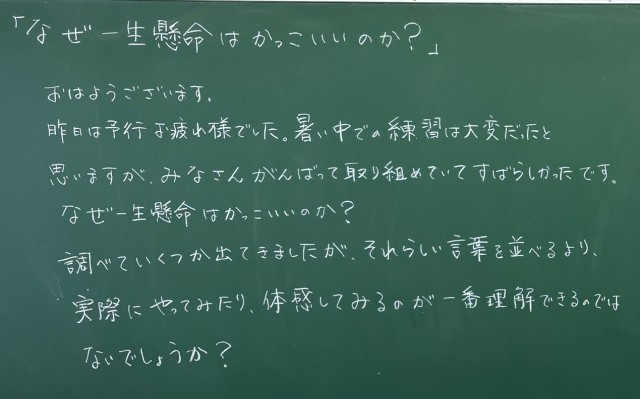 「なぜ一生懸命はかっこいいのか？」
おはようございます。
昨日は予行お疲れ様でした。暑い中での練習は大変だったと
思いますが、みなさんがんばって取り組めていてすばらしかったです。
なぜ一生懸命はかっこいいのか？
調べていくつか出てきましたが、それらしい言葉を並べるより、
実際にやってみたり、体感してみるのが一番理解できるのでは
ないでしょうか？